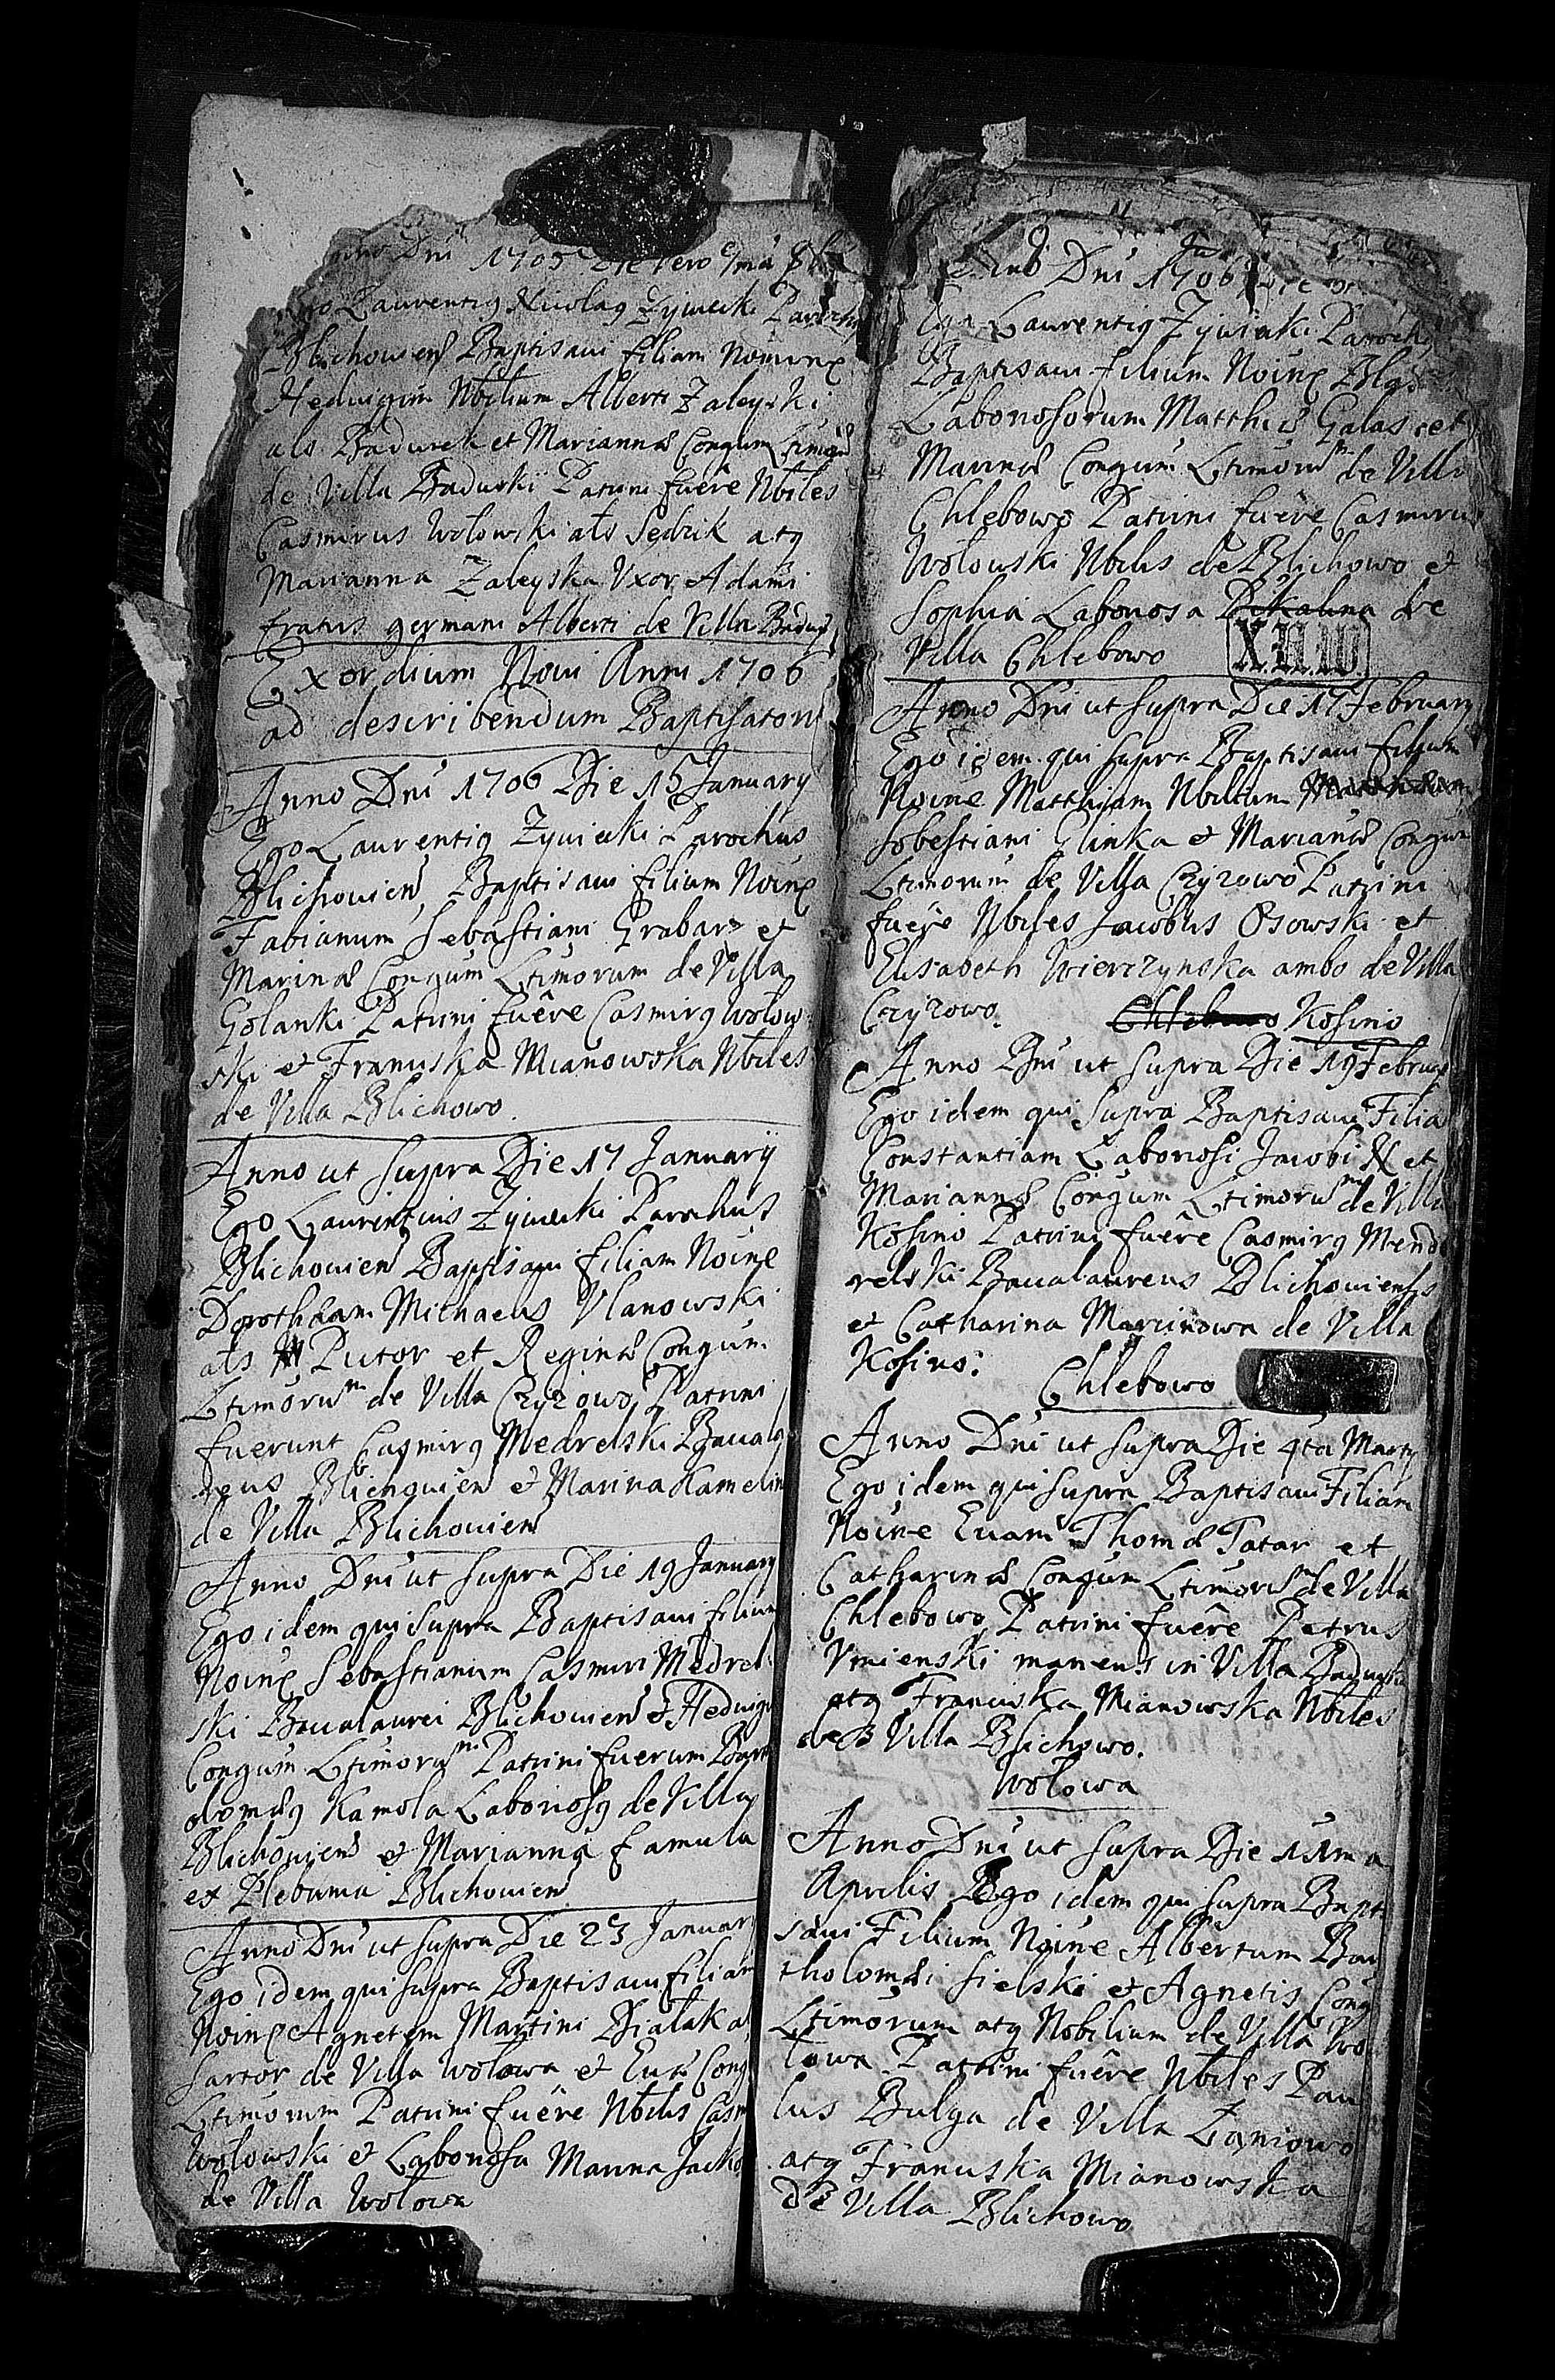 Dni 1705 Die vero
Ego Laurentig Nicolag Zywiecki Paroch
Blichowien Baptisavi filiam Nomine
Hedvigim Nbilium Alberti Zaleyski
als Badurek et Mariannæ Congum Ltimo
de Villa Badurki Patrini fuêre Nbiles
Casmirus Wołowski als Sędzik atq
Marianna Zaleyska Uxor Adami
fratris germani Alberti de Villa
Exordium Novi Anni 1706
ad describendum Baptisator
Anno Dni 1706 Die 15 January
Ego Laurentig Zywiecki Parochus
Blichowien Baptisavi filium Noine
Fabianum Sebastiani Grabarz et
Marinæ Congum Ltimorum de Villa
Golanki Patrini fuêre Casmirg Wołow
ski et Franciska Mianowska Nbiles
de Villa Blichowo.
Anno ut supra Die 17 Januarij
Ego Laurentius Zywiecki Parochus
Blichowien Baptisavi filiam Noine
Dorotheam Michaelis Ulanowski
als Putor et Reginæ Congum
Ltimoru de Villa Czyzowo Patrini
fuerunt Casmirg Mędrelski Baccala
reus Blichowien et Marina Kamelin
de Villa Blichowien
Anno Dni ut supra Die 19 January
Ego idem qui supra Baptisavi filium
Noine Sebastianum Casmiri Mędrel
ski Baccalaurei Blichowien et Hedvigis
Congum Ltimoru Patrini fuerunt Bart
olomæg Kamola Laboriosg de Villa
Blichowien et Marianna famula
ex Plebania Blichowien
Anno Dni ut supra Die 23 January
Ego idem qui supra Baptisavi filiam
Noine Agnetem Martini Białaka
Sartor de Villa Wołowa et Evæ Cong
Ltimorum Patrini fuêre Nbilis Casm
Wołowski et Laboriosa Marina Jacko
de Villa Wołowa
Dni 1706 Die
Ego Laurentig Zywiecki Parochg
Baptisavi filium Noine Blas
Laboriosorum Matthiæ Galas et
Marinæ Congum Ltimoru de Villa
Chlebowo Patrini fuêre Casmirus
Wołowski Nbilis de Blichowo et
Sophia Laboriosa Pikalina de
Villa Chlebowo
Anno Dni ut supra Die 17 February
Ego idem qui supra Baptisavi filium
Noine Matthiam Nbilium
Sobestiani Glinka et Mariannæ Congum
Ltimorum de Villa Czyzowo Patrini
fuêre Nbiles Jacobus Osowski et
Elisabeth Wierczynska ambo de Villa
Czyzowo.
Chlebowo Kosino
Anno Dni ut supra Die 19 Februar
Ego idem qui supra Baptisavi Filia
Constantiam Laboriosi Jacobi N et
Mariannæ Congum Ltimoru de Villa
Kosino Patrini fuêre Casmirg Mend
relski Baccalaureus Blichowiensis
et Catharina Marcinowa de Villa
Kosino.
Chlebowo
Anno Dni ut supra Die 4ta Marty
Ego idem qui supra Baptisavi Filiam
Noine Evam Thomæ Tatar et
Catharinæ Congum Ltimoru de Villa
Chlebowo Patrini fuêre Petrus
Umienski manens in Villa Badurki
atq Franciska Mianowska Nbiles
de Villa Blichowo.
Wołowa
Anno Dni ut supra Die 11ma
Aprilis Ego idem qui supra Bapti
savi Filium Noine Albertum Bar
tholomæi Sielski et Agnetis Cong
Ltimorum atq Nobilium de Villa Wo
łowa Patrini fuêre Nbiles Pau
lus Bulga de Villa Łaniowo
atq Franciska Mianowska
de Villa Blichowo